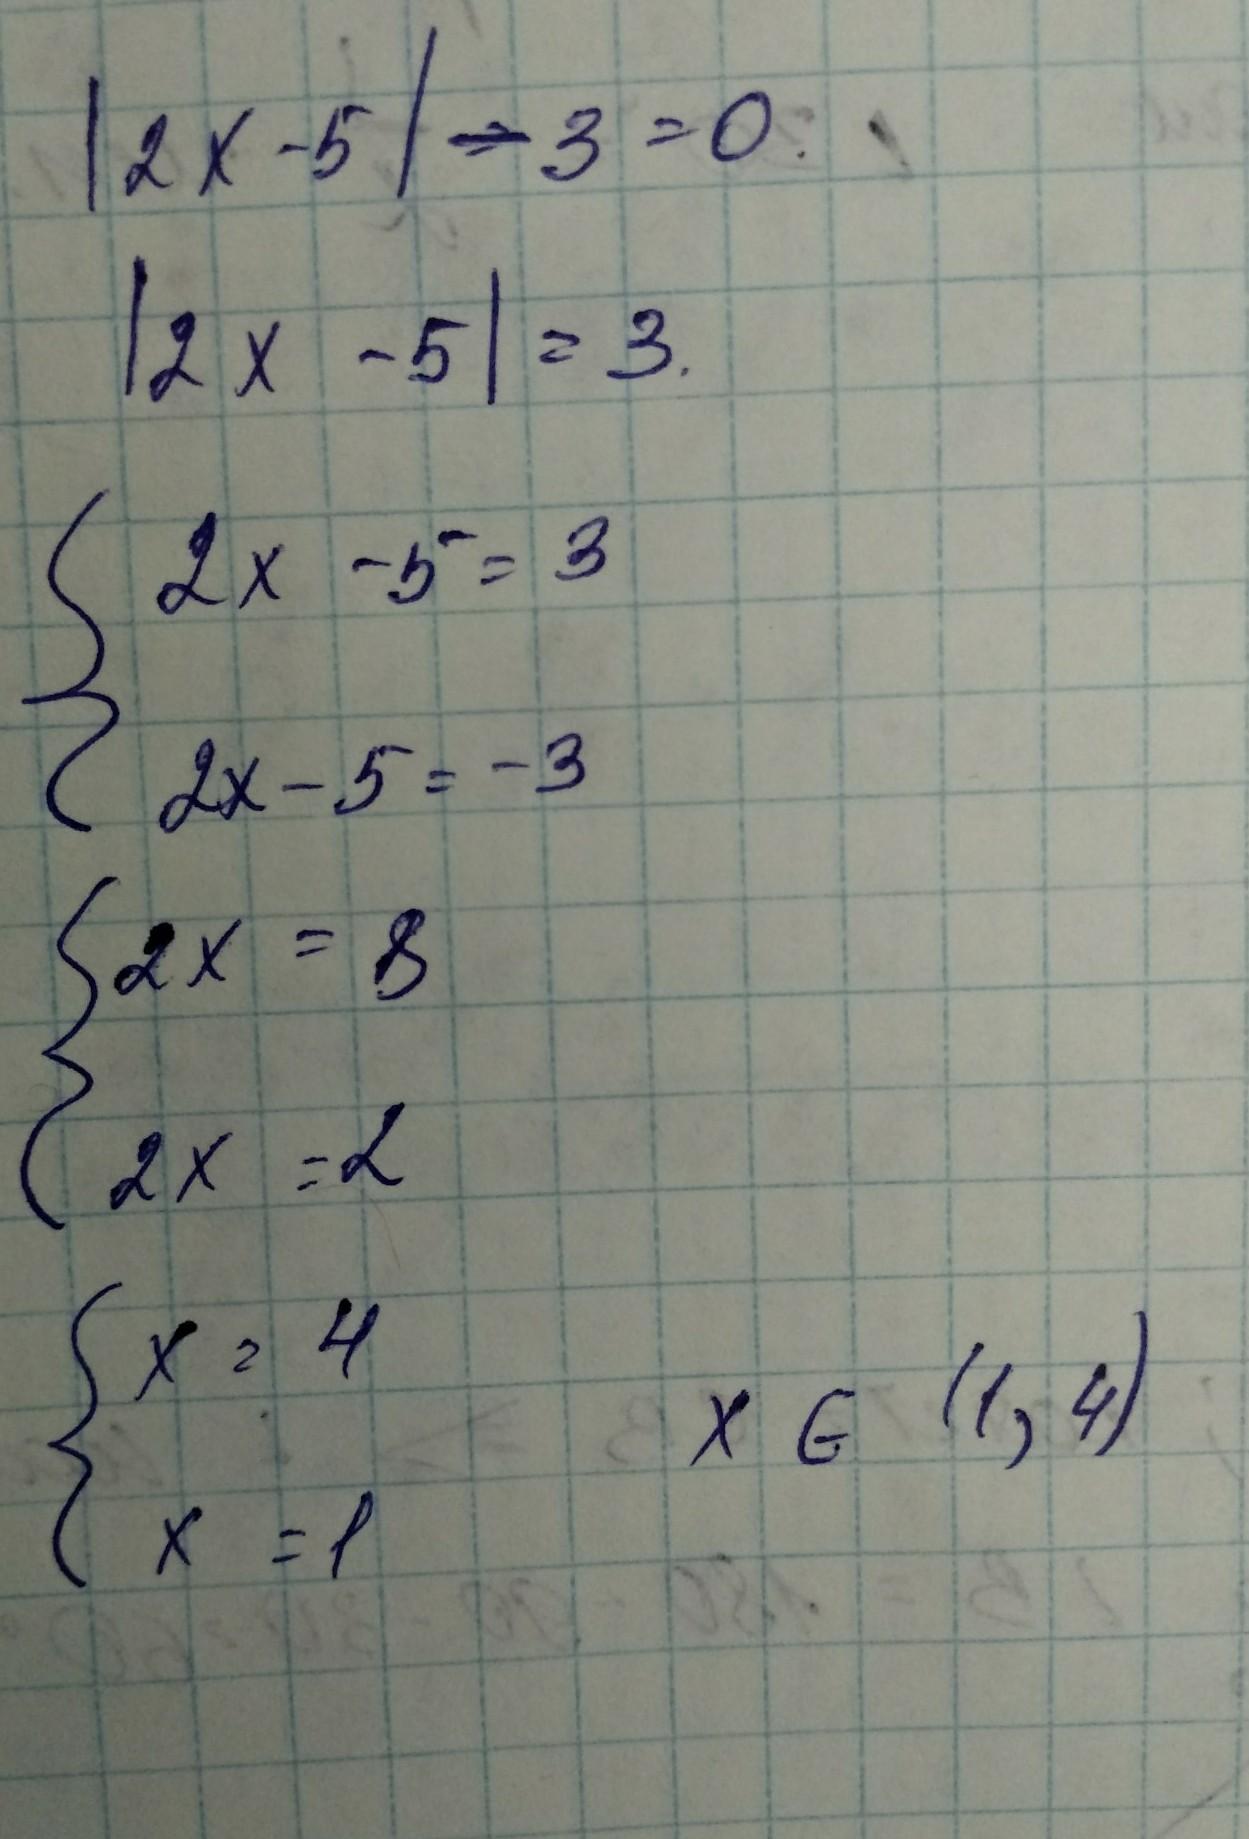 |2x - 5| - 3 = 0.
|2x - 5| = 3.
2x - 5 = 3
2x - 5 = -3
2x = 8
2x = 2
x = 4
x ∈ (1, 4)
x = 1